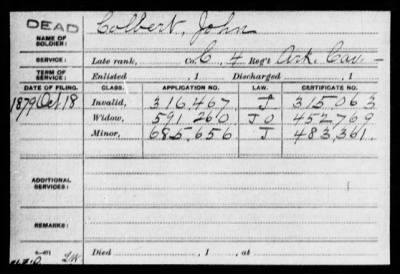 DEAD
NAME OF SOLDIER: Colbert, John
SERVICE: Late rank, Co. C, 4 Reg't Ark. Cav.
TERM OF SERVICE: Enlisted , 1 Discharged , 1
DATE OF FILING. CLASS. APPLICATION NO. LAW. CERTIFICATE NO.
1879 Oct 18 Invalid, 316,467 J 315,063
Widow, 591 260 J O 452,769
Minor, 685,656 J 483,361.
ADDITIONAL SERVICES:
REMARKS:
Died , 1 , at